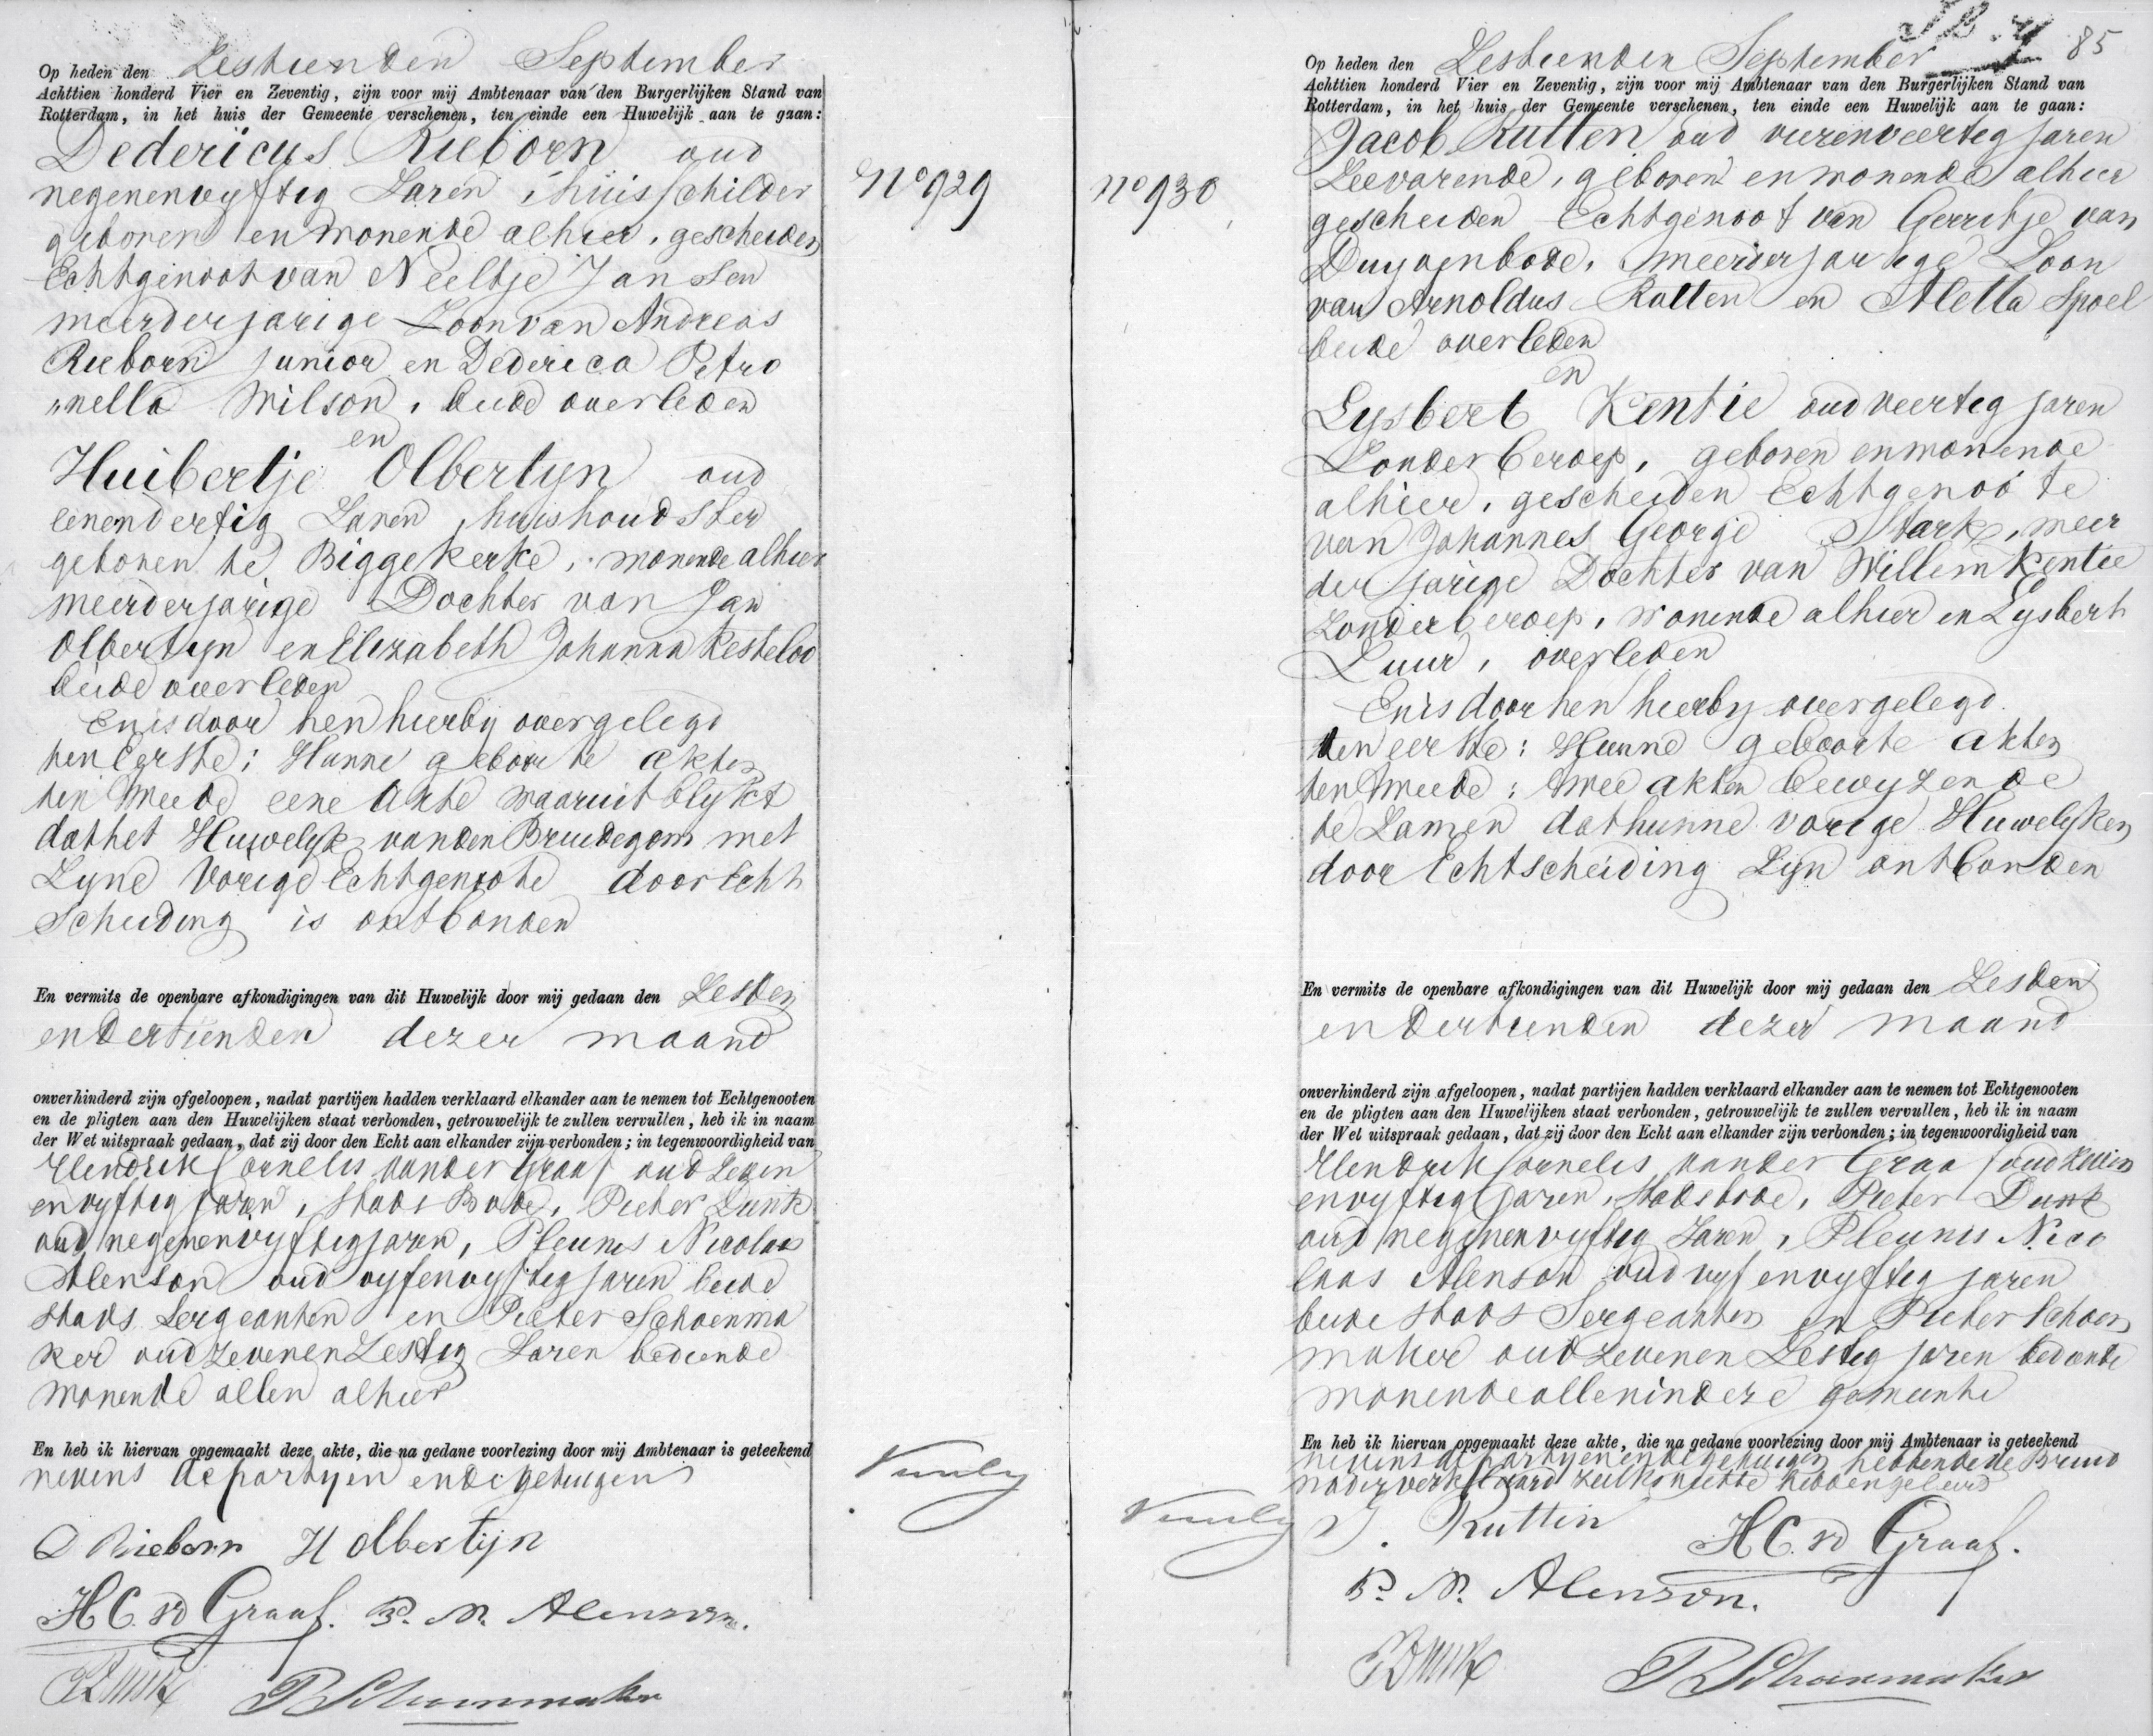 Op heden den Zestienden September
Achttien honderd Vier en Zeventig, zijn voor mij Ambtenaar van den Burgerlijken Stand van
Rotterdam, in het huis der Gemeente verschenen, ten einde een Huwelijk aan te gaan:
Dedericus Rieborn oud
negenenvyftig Jaren, huisschilder
geboren en wonende alhier, gescheiden
Echtgenoot van Neeltje Jansen
meerderjarige Zoon van Andreas
Rieborn Junior en Dederica Petro
„nella Wilson, beide overleden
en
Huibertje Olbertyn oud
eenendertig Jaren, huishoudster
geboren te Biggekerke, wonende alhier
meerderjarige Dochter van Jan
Olbertyn en Elizabeth Johanna Kesteloo
beide overleden
En is door hen hierby overgelegd
ten Eerste: Hunne geboorte akten
ten tweede eene Akte waaruit blykt
dat het Huwelyk van den Bruidegom met
Zyne Vorige Echtgenoote door Echt
scheiding is ontbonden
En vermits de openbare afkondigingen van dit Huwelijk door mij gedaan den Zesden
en dertienden dezer maand
onverhinderd zijn afgeloopen, nadat partijen hadden verklaard elkander aan te nemen tot Echtgenooten
en de pligten aan den Huwelijken staat verbonden, getrouwelijk te zullen vervullen, heb ik in naam
der Wet uitspraak gedaan, dat zij door den Echt aan elkander zijn verbonden; in tegenwoordigheid van
Hendrik Cornelis van der Graaf oud Zeven
envyftig jaren, Stads Bode, Pieter Dunk
oud negenenvyftig jaren, Pleunis Nicolaas
Alenson oud vyfenvyftig jaren beide
Stads Sergeanten en Pieter Schoenma
ker oud Zevenenzestig Jaren bediende
wonende allen alhier
En heb ik hiervan opgemaakt deze akte, die na gedane voorlezing door mij Ambtenaar is geteekend
nevens de partyen en de getuigen
D Rieborn H Olbertijn
H C vd Graaf. P. N. Alenson.
P Dunk P Schoenmaker
No 929
No 930
85
Op heden den Zestienden September
Achttien honderd Vier en Zeventig, zijn voor mij Ambtenaar van den Burgerlijken Stand van
Rotterdam, in het huis der Gemeente verschenen, ten einde een Huwelijk aan te gaan:
Jacob Rutten oud vierenveertig jaren
Zeevarende, geboren en wonende alhier
gescheiden Echtgenoot van Gerritje van
Duyvenbode, meerderjarige Zoon
van Arnoldus Rutten en Aletta Spoel
beide overleden
en
Lysbert Kentie oud veertig jaren
Zonder beroep, geboren en wonende
alhier, gescheiden Echtgenoote
van Johannes George Stark, meer
derjarige Dochter van Willem Kentie
Zonder beroep, wonende alhier en Lysbert
Luur, overleden
En is door hen hierby overgelegd
ten eerste: Hunne geboorte akten
ten tweede: twee akten bewyzende
te Zamen dat hunne vorige Huwelyken
door Echtscheiding Zyn ontbonden
En vermits de openbare afkondigingen van dit Huwelijk door mij gedaan den Zesden
en dertienden dezer maand
onverhinderd zijn afgeloopen, nadat partijen hadden verklaard elkander aan te nemen tot Echtgenooten
en de pligten aan den Huwelijken staat verbonden, getrouwelijk te zullen vervullen, heb ik in naam
der Wet uitspraak gedaan, dat zij door den Echt aan elkander zijn verbonden; in tegenwoordigheid van
Hendrik Cornelis van der Graaf oud zeven
envyftig jaren, Stadsbode, Pieter Dunk
oud negenenvyftig Jaren, Pleunis Nico
laas Alenson oud vyfenvyftig jaren
beide Stads Sergeanten en Pieter Schoen
maker oud Zevenen Zestig jaren bediende
wonende allen in deze gemeente
En heb ik hiervan opgemaakt deze akte, die na gedane voorlezing door mij Ambtenaar is geteekend
nevens de partyen en de getuigen hebbende de Bruid
nader verklaard zulks niet te hebben geleerd
J. Rutten H C vd Graaf.
P. N. Alenson.
P Dunk P Schoenmaker